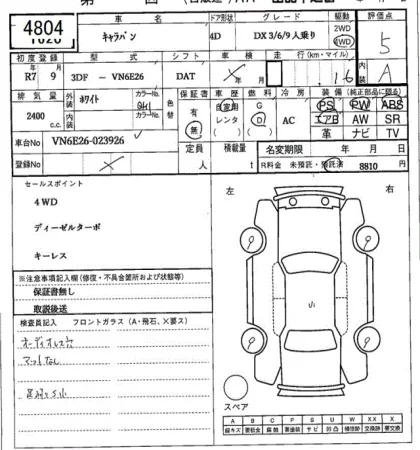 4804
車名
ドア形状
グレード
駆動
評価点
キャラバン
4D
DX 3/6/9 人乗り
2WD
4WD
5
初度登録
型式
シフト
車検
走行(km・マイル)
内装
R7 9
3DF － VN6E26
DAT
年 月
16
A
排気量
外装
色
カラーNo.
色替
保証書
車歴
燃料
冷房
装備(純正部品に限る)
2400
c.c.
ホワイト
QM1
有
無
自家用
レンタ
G
D
AC
PS PW ABS
エアB AW SR
革 ナビ TV
内装
色
カラーNo.
車台No
VN6E26-023926
定員
人
積載量
t
名変期限
年 月 日
登録No
R料金 未預託・預託済
8810 円
セールスポイント
4WD
ディーゼルターボ
キーレス
左
右
※注意事項記入欄(修復・不具合箇所および状態等)
保証書無し
取説後送
検査員記入
フロントガラス(A・飛石、×要ス)
オーディオレス
マットなし
スペア
A B C P S U W X XX X